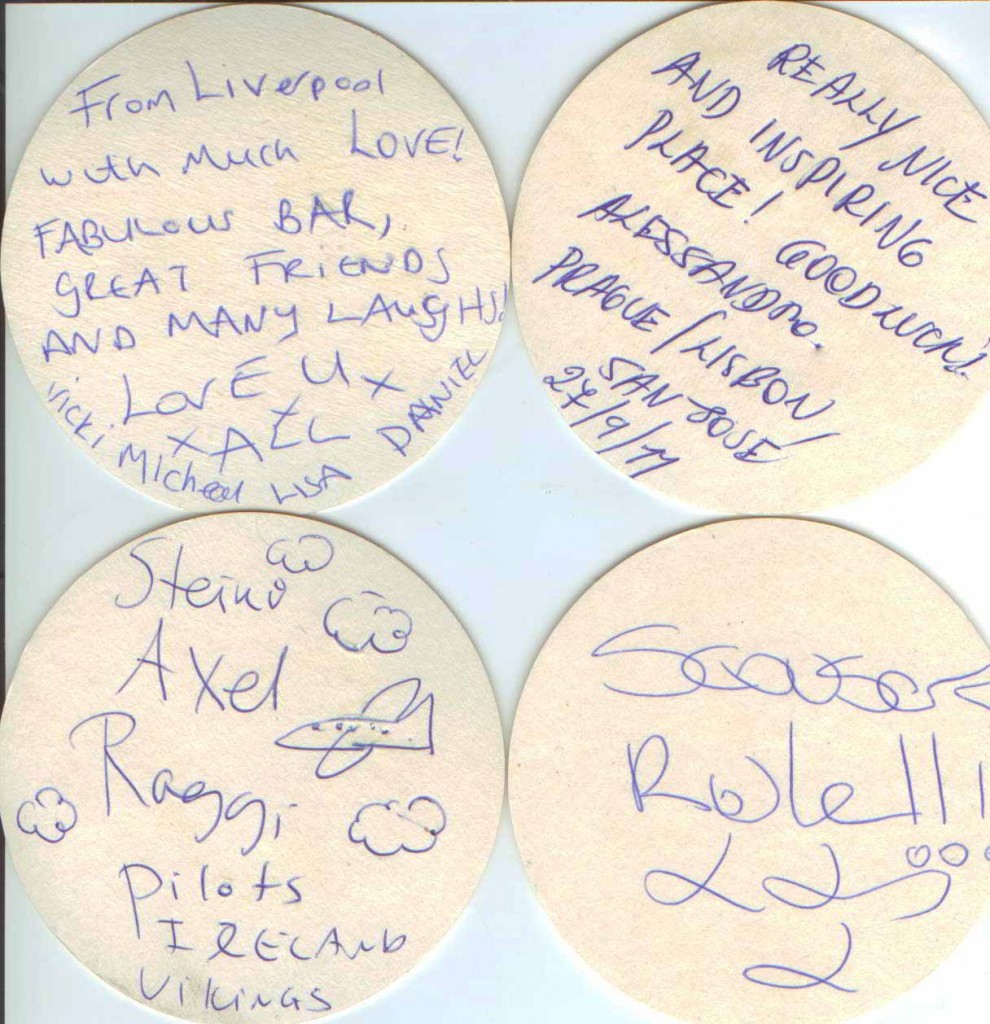 From Liverpool
with Much LOVE!
FABULOUS BAR,
GREAT FRIENDS
AND MANY LAUGHS!
LOVE U X
X ALL X
Vicki Micheal LISA DANIEL
REALLY NICE
AND INSPIRING
PLACE! GOOD LUCK!
ALESSANDRO.
PRAGUE/LISBON/
SAN JOSE'
27/9/11
Steini
Axel
Raggi
Pilots
IRELAND
VIKINGS
Scousers
Rule!!!